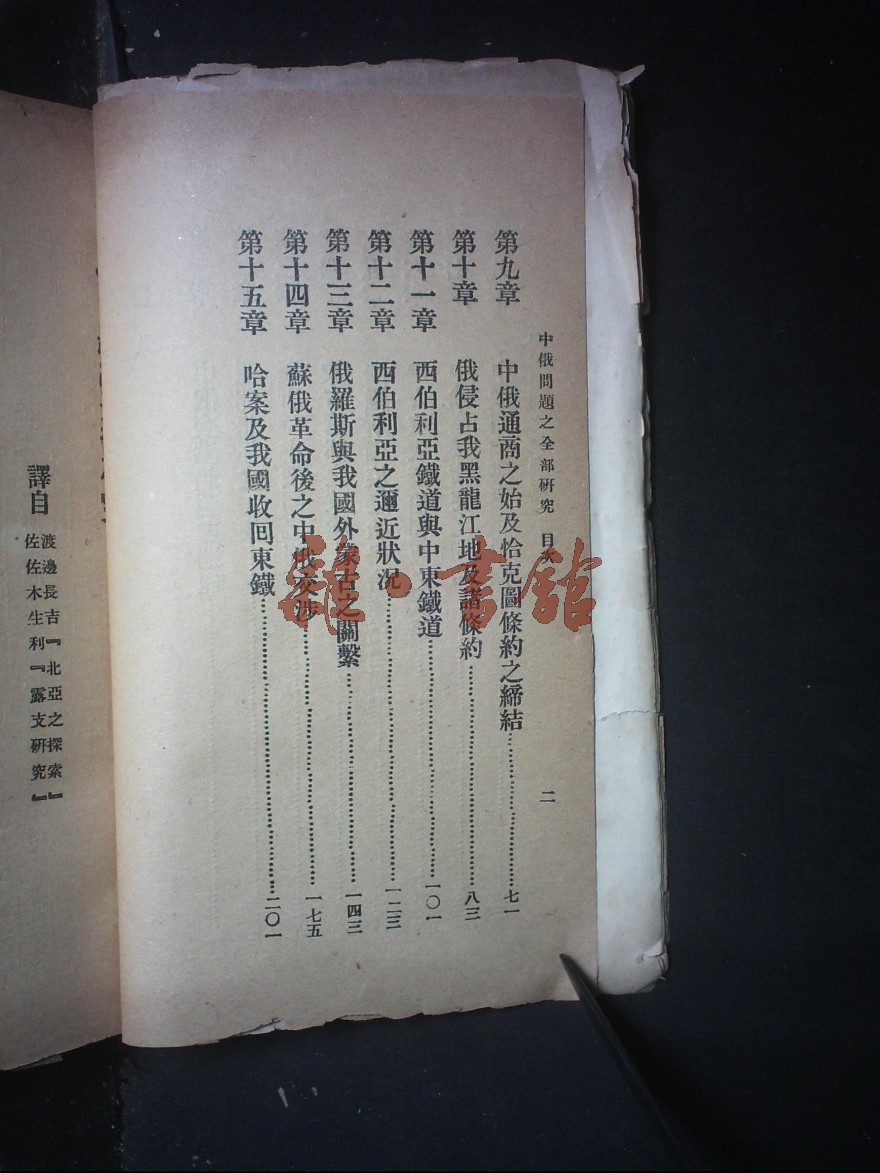 中俄問題之全部研究 目次 二
第九章 中俄通商之始及恰克圖條約之締結…………七一
第十章 俄侵占我黑龍江地及諸條約…………八三
第十一章 西伯利亞鐵道與中東鐵道…………一〇一
第十二章 西伯利亞之邇近狀况…………一二三
第十三章 俄羅斯與我國外蒙古之關繫…………一四三
第十四章 蘇俄革命後之中俄交涉…………一七五
第十五章 哈案及我國收回東鐵…………二〇一
譯自
渡邊長吉『北亞之探索』
佐佐木生利『露支研究』
雜·書館